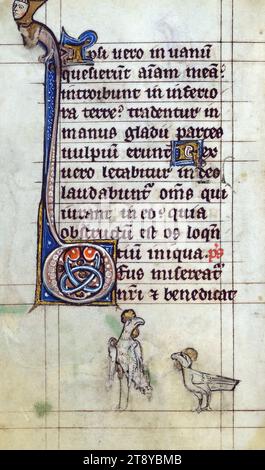 Ipsi vero in vanū
quesierūt aīam meā:
introibunt in inferio
ra terre: tradentur in
manus gladii partes
vulpium erunt Rex
vero letabitur in deo
laudabunt̄ om̄s qui
iurant in eo: quia
obstructū est os loqn̄
tium iniqua. ps
Deus misereat̄
nr̄i ⁊ benedicat
alamy
Image ID: 2S8YBMB
www.alamy.com